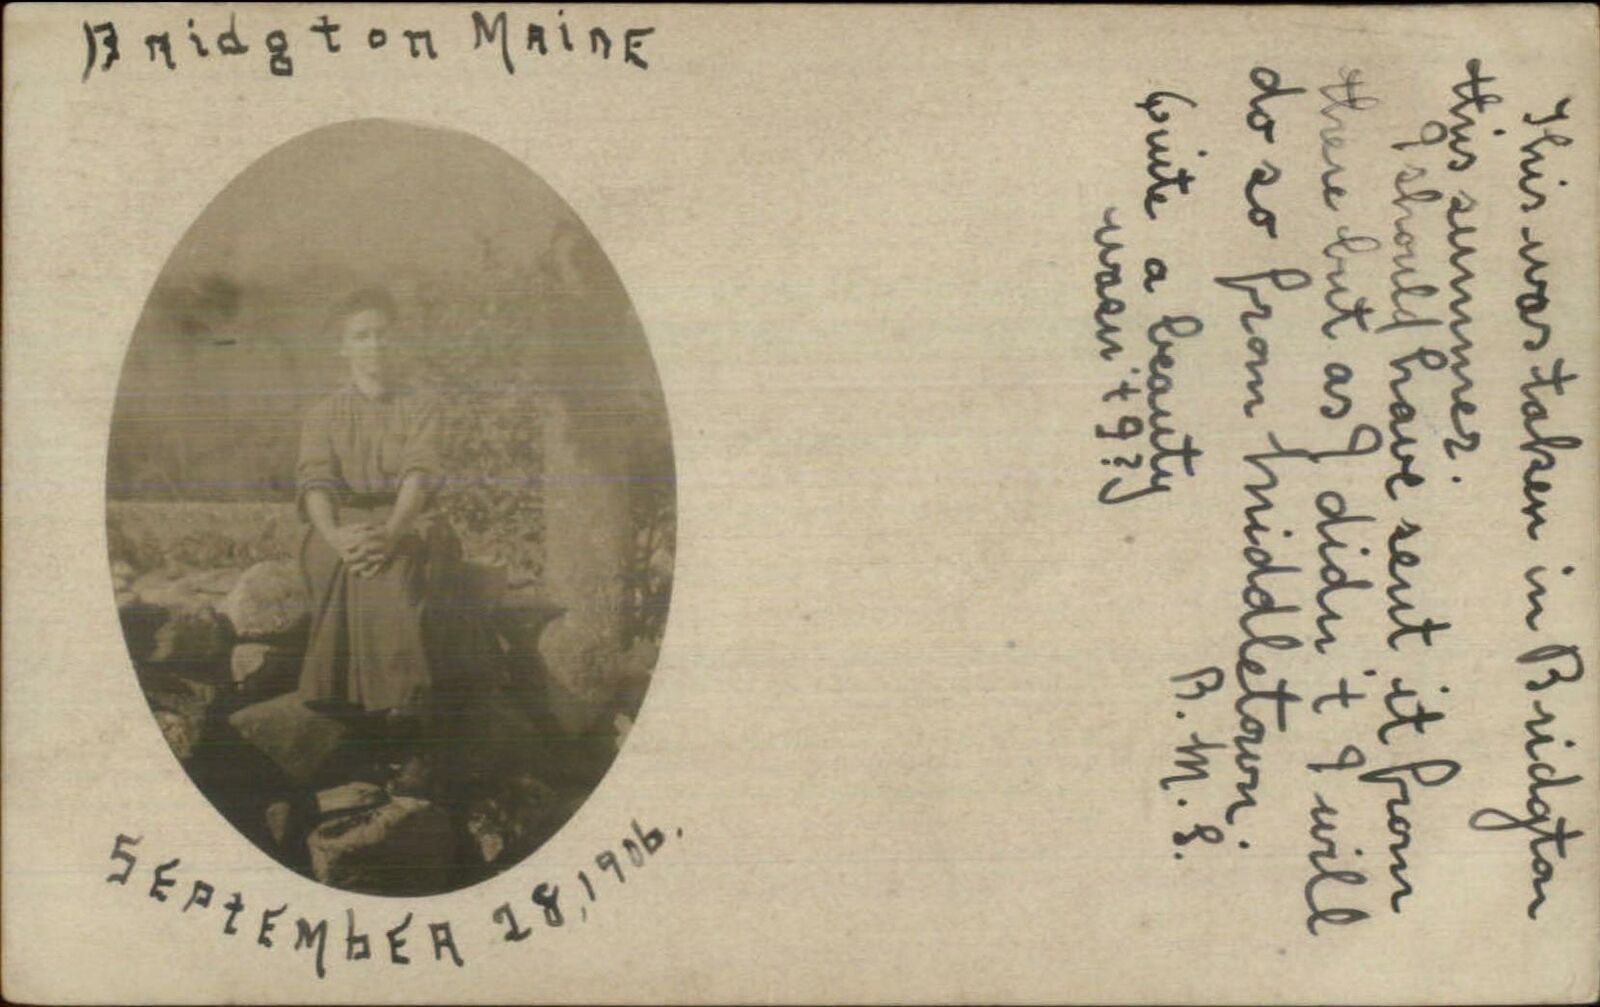 Bridgton MAiNE
SEPtEMbER 28, 1906.
This was taken in Bridgton
this summer.
I should have sent it from
there but as I didn't I will
do so from Middletown.
Quite a beauty
wasn't I??
B. M. S.